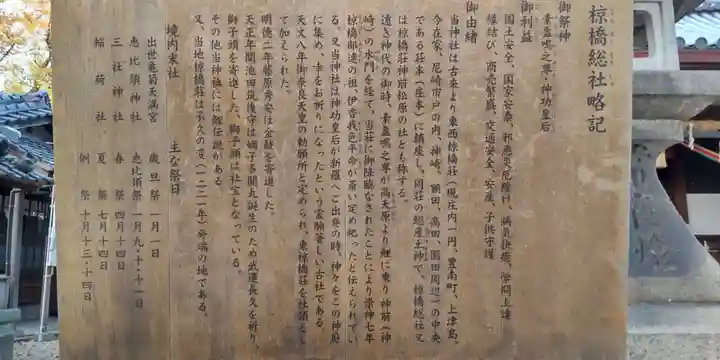 椋橋総社略記
御祭神
素盞嗚之尊・神功皇后
御利益
国土安全、国家安泰、邪気悪厄除け、病気快癒、学問上達
縁結び、商売繁盛、交通安全、安産、子供守護
御由緒
当神社は古来より東西椋橋荘（現庄内一円、豊南町、上津島、
今在家、尼崎市戸の内、神崎、額田、高田、園田周辺）の中央
である荘本（庄本）に鎮座し、同荘の総産土神で、椋橋総社又
は椋橋荘神崎松原の社とも称する。
遠き神代の御時、素盞嗚之尊が高天原より鯉に乗り神前（神
崎）の水門を経て、当荘に御降臨なされたことにより崇神七年
椋橋部連の祖、伊香我色乎命が斎い定め祀ったと伝えられてい
る。又当神社は神功皇后が新羅へご出発の時、神々をこの神庭
に集め、幸をお祈りになったという霊験著しい古社である。
天文八年御奈良天皇の勅願所と定められ、東椋橋荘を社領とし
て加えられた。
明徳二年藤原秀安は金鼓を寄進した。
天正年間池田丹後守は嫡子多聞丸誕生のため武運長久を祈り、
獅子頭を寄進した。獅子頭は社宝となっている。
その他当神社には鯉伝説がある。
又、当地椋橋荘は承久の変（一二二一年）発端の地である。
境内末社　主な祭日
出世亀菊天満宮　歳旦祭　一月一日
恵比須神社　恵比須祭　一月九・十・十一日
三社神社　春祭　四月十四日
稲荷社　夏祭　七月十四日
例祭　十月十三・十四日